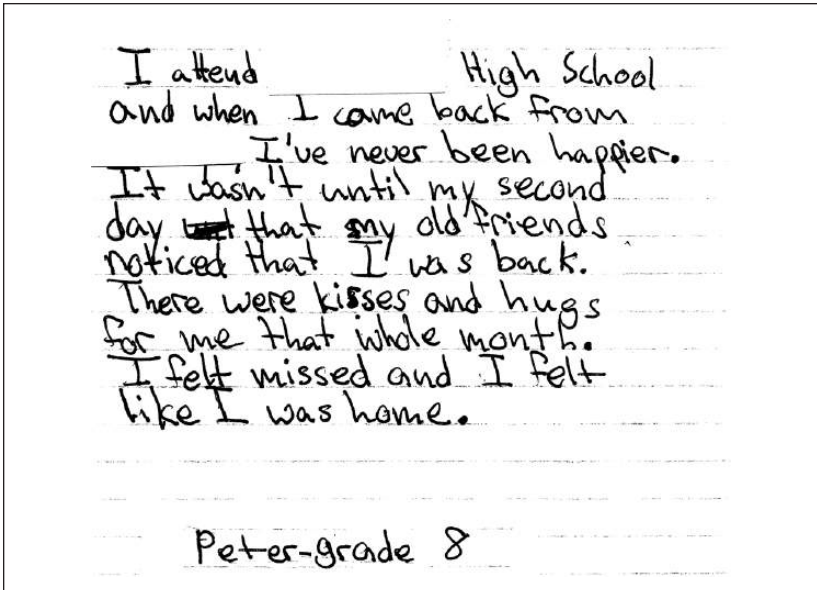 I attend High School
and when I came back from
I've never been happier.
It wasn't until my second
day that my old friends
noticed that I was back.
There were kisses and hugs
for me that whole month.
I felt missed and I felt
like I was home.
Peter-grade 8